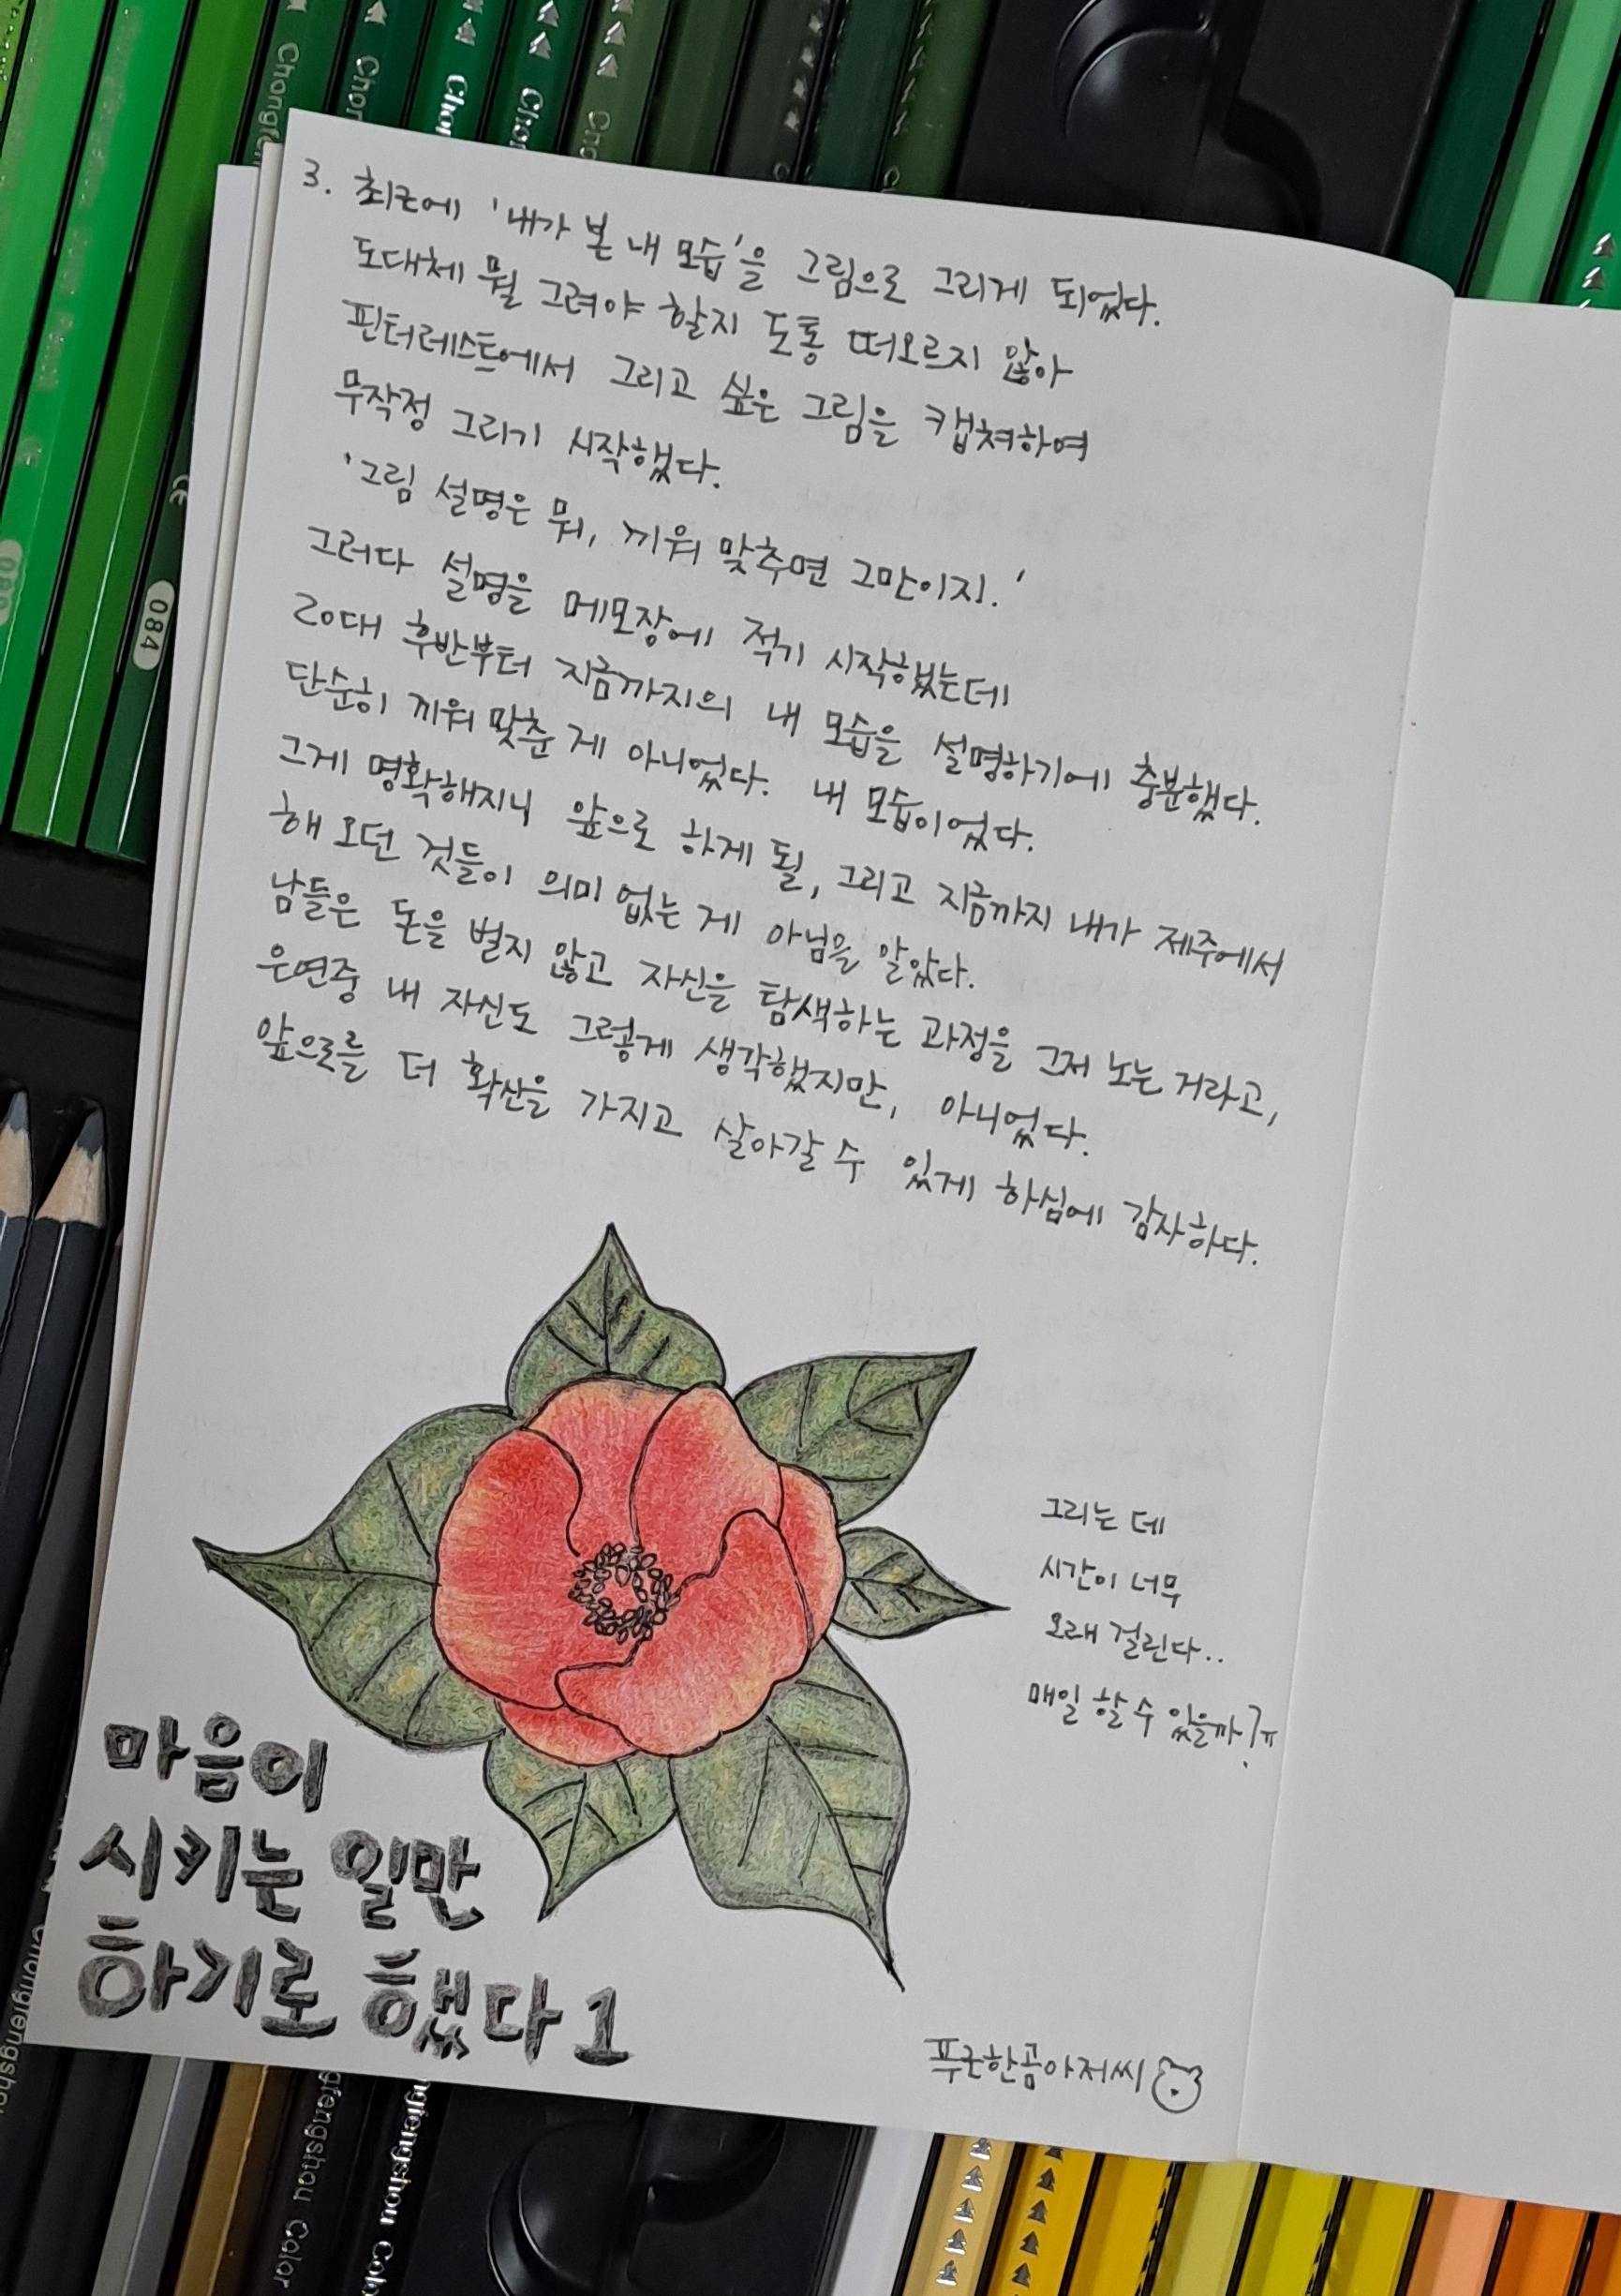 Chongfen
Chon
Chon
Chon
Chong
3. 최근에 '내가 본 내 모습'을 그림으로 그리게 되었다.
도대체 뭘 그려야 할지 도통 떠오르지 않아
핀터레스트에서 그리고 싶은 그림을 캡쳐하여
무작정 그리기 시작했다.
'그림 설명은 뭐, 끼워 맞추면 그만이지.'
그러다 설명을 메모장에 적기 시작했는데
20대 후반부터 지금까지의 내 모습을 설명하기에 충분했다.
단순히 끼워 맞춘 게 아니었다. 내 모습이었다.
그게 명확해지니 앞으로 하게 될, 그리고 지금까지 내가 제주에서
해 오던 것들이 의미 없는 게 아님을 알았다.
남들은 돈을 벌지 않고 자신을 탐색하는 과정을 그저 노는 거라고,
은연중 내 자신도 그렇게 생각했지만, 아니었다.
앞으로를 더 확신을 가지고 살아갈 수 있게 하심에 감사하다.
CE
084
080
그리는 데
시간이 너무
오래 걸린다..
매일 할 수 있을까?ㅠ
마음이
시키는 일만
하기로 했다 1
푸근한곰아저씨
Chongfengshou
gfengshou Color
ngfengshou Colo